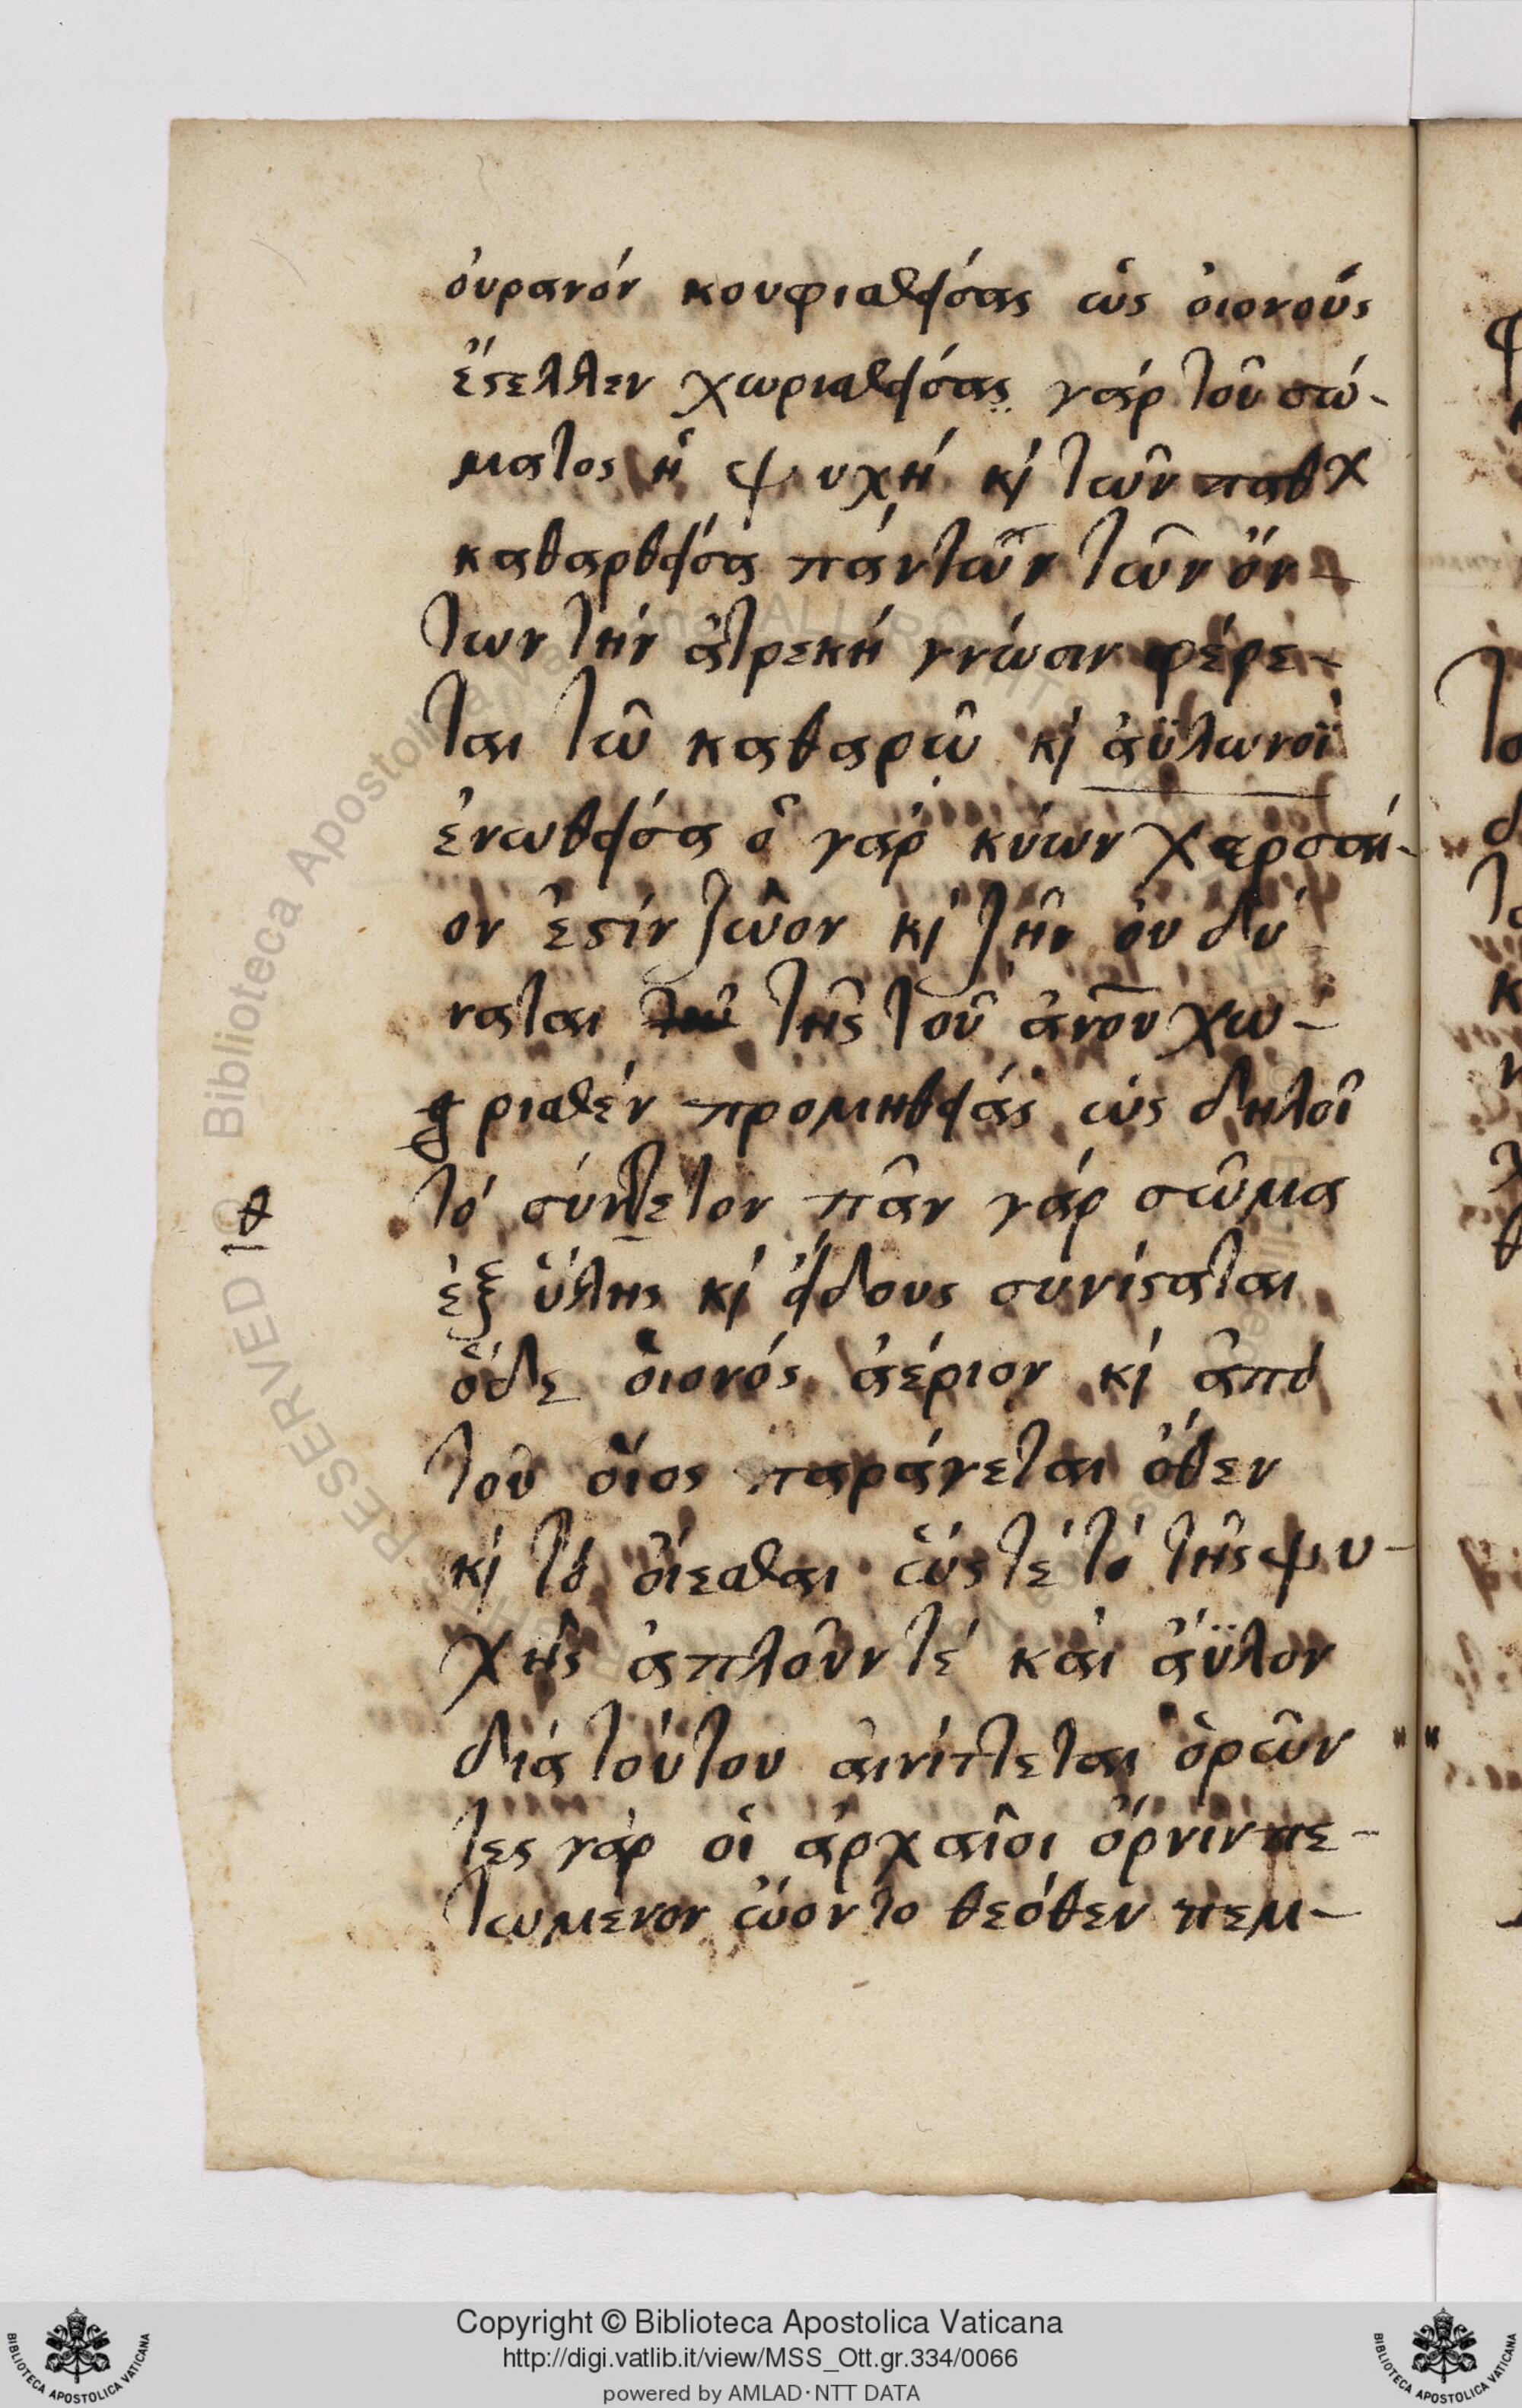 ὀυρανόν κουφισθείσας ὡς ὀιονούς
ἔστελλεν χωρισθείσας γάρ τοῦ σώ-
ματος ἡ ψυχή κὶ τῶν παθ χ
καθαρθείσα πάντῶν τῶν ὄν-
των τήν ἀτρεκή γνώσιν φέρε-
ται τῶ καθαρῶ κὶ ἀΰλωνοῒ
ἑνωθείσα ὁ γάρ κύων χερσαί-
ον ἐστίν ζῶον κὶ ζῆν ὀυ δύ
ναται τῆς τοῦ ἀνου χω-
ρισθέν προμηθείας ὡς δηλοῖ
τό σύνθετον πᾶν γάρ σῶμα
θ
ἐξ ὕλης κὶ ἔιδους συνίσταται
ὅδε ὀιονός ἀέριον κὶ ἀπό
τοῦ οἶος παράγεται ὅθεν
κὶ τό ὀίεσθαι ὥς τέ τό τῆς ψυ-
χῆς ἁπλοῦν τέ καὶ ἄϋλον
διά τούτου αινίττεται ὁρῶν
τες γάρ οἱ ἀρχαῖοι ὄρνιν πε-
τωμενον ὤοντο θεόθεν πεμ-
Copyright © Biblioteca Apostolica Vaticana
http://digi.vatlib.it/view/MSS_Ott.gr.334/0066
powered by AMLAD·NTT DATA
BIBLIOTECA APOSTOLICA VATICANA
BIBLIOTECA APOSTOLICA VATICANA